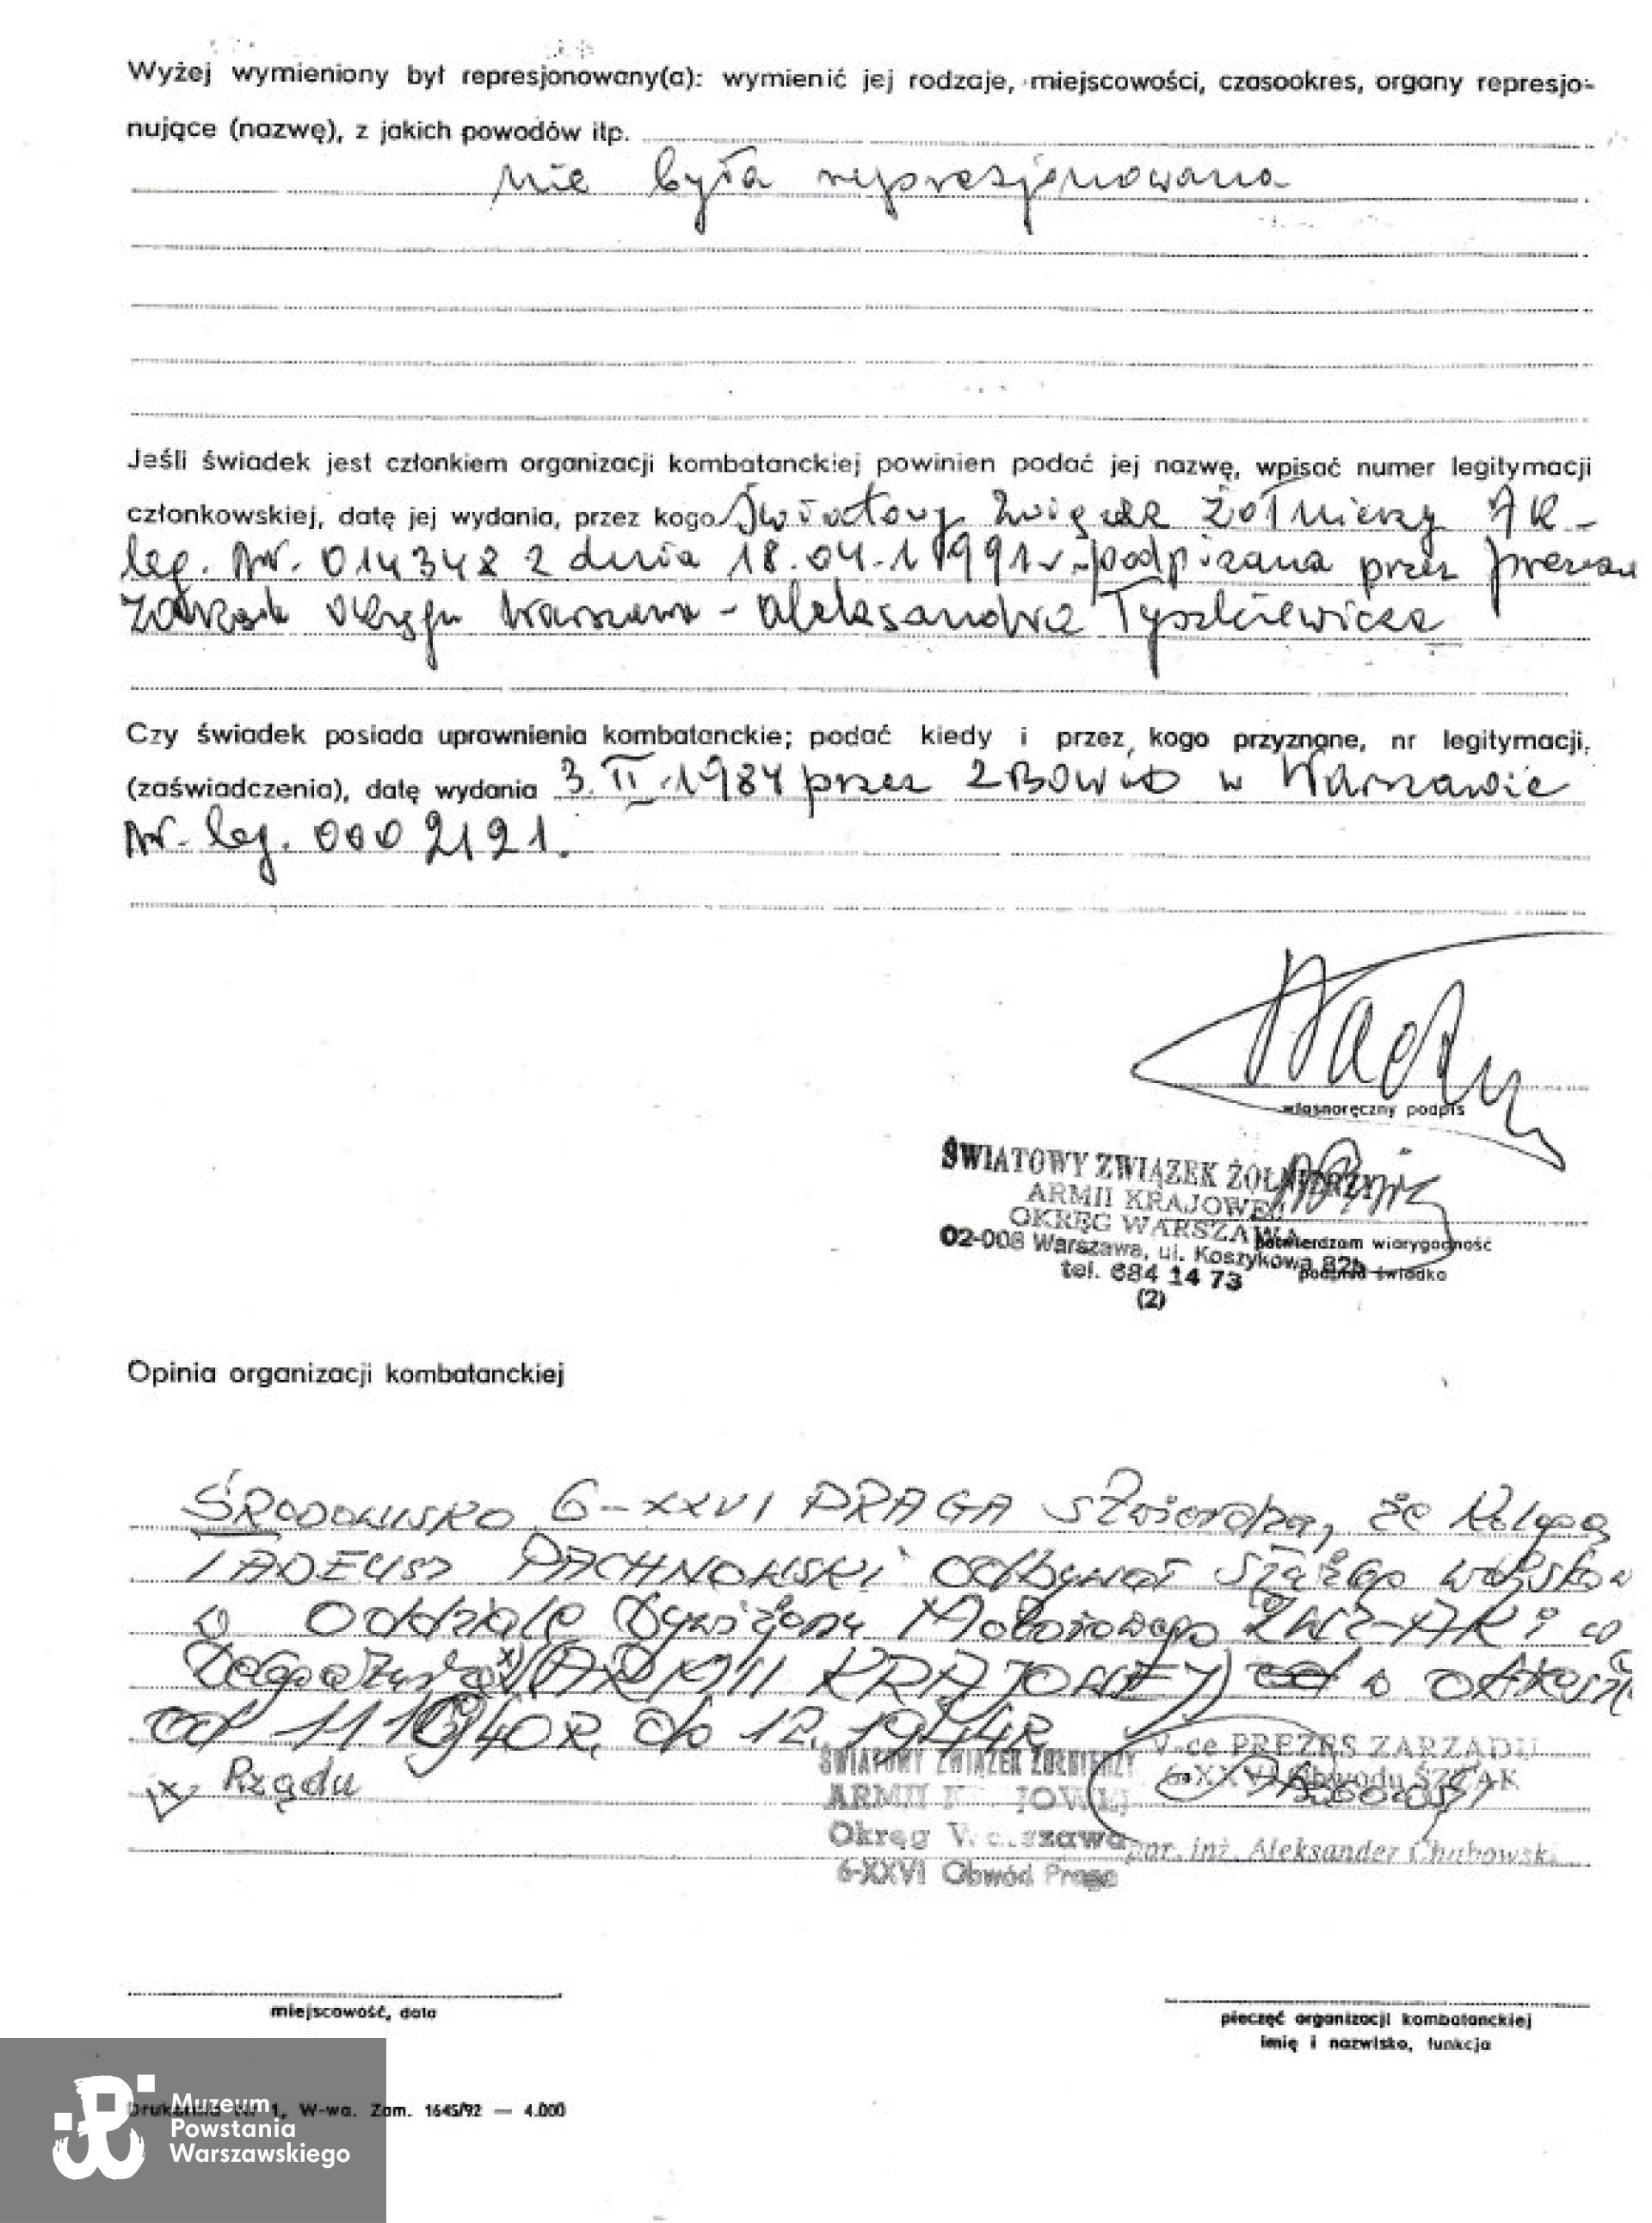 Wyżej wymieniony był represjonowany(a): wymienić jej rodzaje, miejscowości, czasookres, organy represjo-
nujące (nazwę), z jakich powodów itp.
nie była represjonowana
Jeśli świadek jest członkiem organizacji kombatanckiej powinien podać jej nazwę, wpisać numer legitymacji
członkowskiej, datę jej wydania, przez kogo Światowy Związek Żołnierzy AK -
leg. Nr. 014348 z dnia 18.04.1991r podpisana przez prezesa
Zarządu Okręgu Warszawa - Aleksandra Tyszkiewicza
Czy świadek posiada uprawnienia kombatanckie; podać kiedy i przez kogo przyznane, nr legitymacji,
(zaświadczenia), datę wydania 3.II.1984 przez ZBOWiD w Warszawie
Nr. leg. 0002121.
własnoręczny podpis
ŚWIATOWY ZWIĄZEK ŻOŁNIERZY
ARMII KRAJOWEJ
OKRĘG WARSZAWA
02-008 Warszawa, ul. Koszykowa 82b
potwierdzam wiarygodność
podpisu świadka
tel. 684 14 73
(2)
Opinia organizacji kombatanckiej
ŚRODOWISKO 6-XXVI PRAGA stwierdza, że Kolega
TADEUSZ PACHNOWSKI odbywał służbę wojskow
w Oddziale Dywizjonu Motorowego ZWZ-AK i w
Delegaturze x) (ARMII KRAJOWEJ) w okresie
od 11 1940R. do 12. 1944R
x Rządu
ŚWIATOWY ZWIĄZEK ŻOŁNIERZY
ARMII KRAJOWEJ
Okręg Warszawa
6-XXVI Obwód Praga
V-ce PREZES ZARZĄDU
6-XXVI Obwodu ŚZŻAK
por. inż. Aleksander Chabowski
miejscowość, data
pieczęć organizacji kombatanckiej
imię i nazwisko, funkcja
Drukarnia Nr 1, W-wa. Zam. 1645/92 — 4.000
Muzeum
Powstania
Warszawskiego